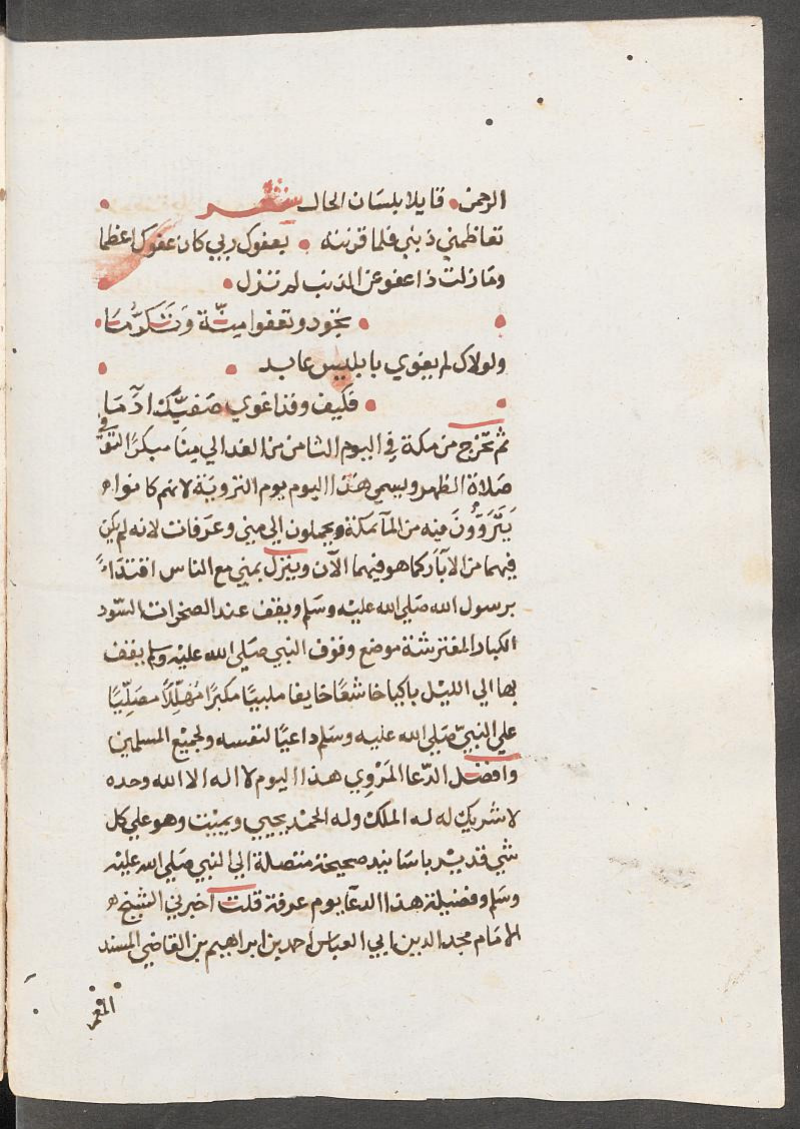 الرحمن • قايلا بلسان الحال شعر •
تعاظمني ذنبي فلما قرنته • بعفوك ربي كان عفوك اعظما
ومازلت ذا عفو عن الذنب لم تزل •
• تجود وتعفوا منّة وتَكرُّمَا •
ولولاك لم يغوي بابليس عابد • •
• فكيف وقد اغوي صَفيّك ادَمَا
ثم تخرج من مكة في اليوم الثامن من الغد الي منًا مبكرًا لتوقّ
صَلاة الظهر ويسمي هذا اليوم يوم التروية لانهم كانوا ه
يَتَرَوَّوُنَ فيه من المآ بمكة ويحملون الي مني وعرفات لانه لم يكن
فيهما من الآبار كما هو فيهما الآن وينزل بمني مع الناس اقتدَاءً
برسول الله صَلي الله عليه وسَلم ويقف عند الصخرات السّود
الكبار المفترشة موضع وقوف النبي صَلي الله عليه وسلم يقف
بها الي الليل باكيا خاشعًا خايفا ملبيًا مكبرًا مُهَلِّلاً مصَلِّيًا
علي النبيّ صَلي الله عليه وسَلم داعيًا لنفسه ولجميْع المسلمين
وافضل الدّعا المَرْوي هذا اليوم لا اله الا الله وحده
لا شريك له له الملك وله الحمد يحيي ويميْت وهو علي كل
شي قديْر باسَانيد صحيحة متصلة الي النبي صَلي الله عليْه
وسَلم وفضيلة هذا الدعآ يوم عرفة قلت اخبرني الشيْخ ه
الامَام مجد الدين ابي العباس احمد بن ابراهيم بن القاضي المسند
المعمر